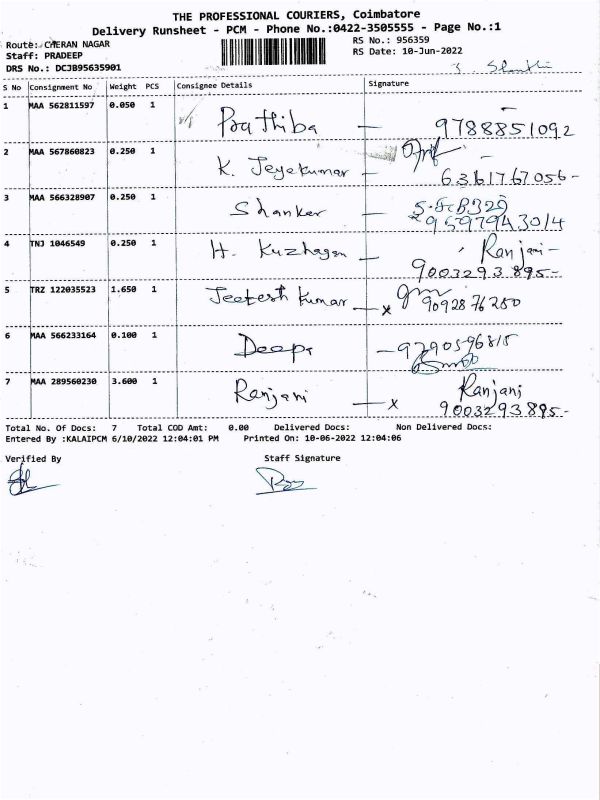 THE PROFESSIONAL COURIERS, Coimbatore
Delivery Runsheet - PCM - Phone No.:0422-3505555 - Page No.:1
Route: CHERAN NAGAR RS No.: 956359
Staff: PRADEEP RS Date: 10-Jun-2022
DRS No.: DCJB95635901
S No Consignment No Weight PCS Consignee Details Signature
1 MAA 562811597 0.050 1 Prathiba - 9788851092
2 MAA 567860823 0.250 1 K. Jeyakumar - 6361767056-
3 MAA 566328907 0.250 1 Shanker - 9597943014
4 TNJ 1046549 0.250 1 H. Kuzhagan - Ranjani-
9003293895-
5 TRZ 122035523 1.650 1 Jeetesh Kumar - x 9092876250
6 MAA 566233164 0.100 1 Deepa - 9790596815
7 MAA 289560230 3.600 1 Ranjani - x Ranjani
9003293895-
Total No. Of Docs: 7 Total COD Amt: 0.00 Delivered Docs: Non Delivered Docs:
Entered By :KALAIPCM 6/10/2022 12:04:01 PM Printed On: 10-06-2022 12:04:06
Verified By Staff Signature